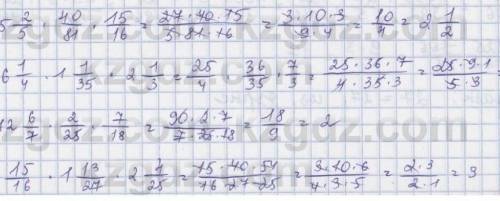 5 2/5 · 40/81 · 15/16 = 27·40·15/5·81·16 = 3·10·3/9·4 = 10/4 = 2 1/2
6 1/4 · 1 1/35 · 2 1/3 = 25/4 · 36/35 · 7/3 = 25·36·7/4·35·3 = 25·9·1/5·3
12 6/7 · 2/25 · 7/18 = 90·2·7/7·25·18 = 18/9 = 2
15/16 · 1 13/27 · 2 4/25 = 15·40·54/16·27·25 = 3·10·6/4·3·5 = 2·3/2·1 = 3